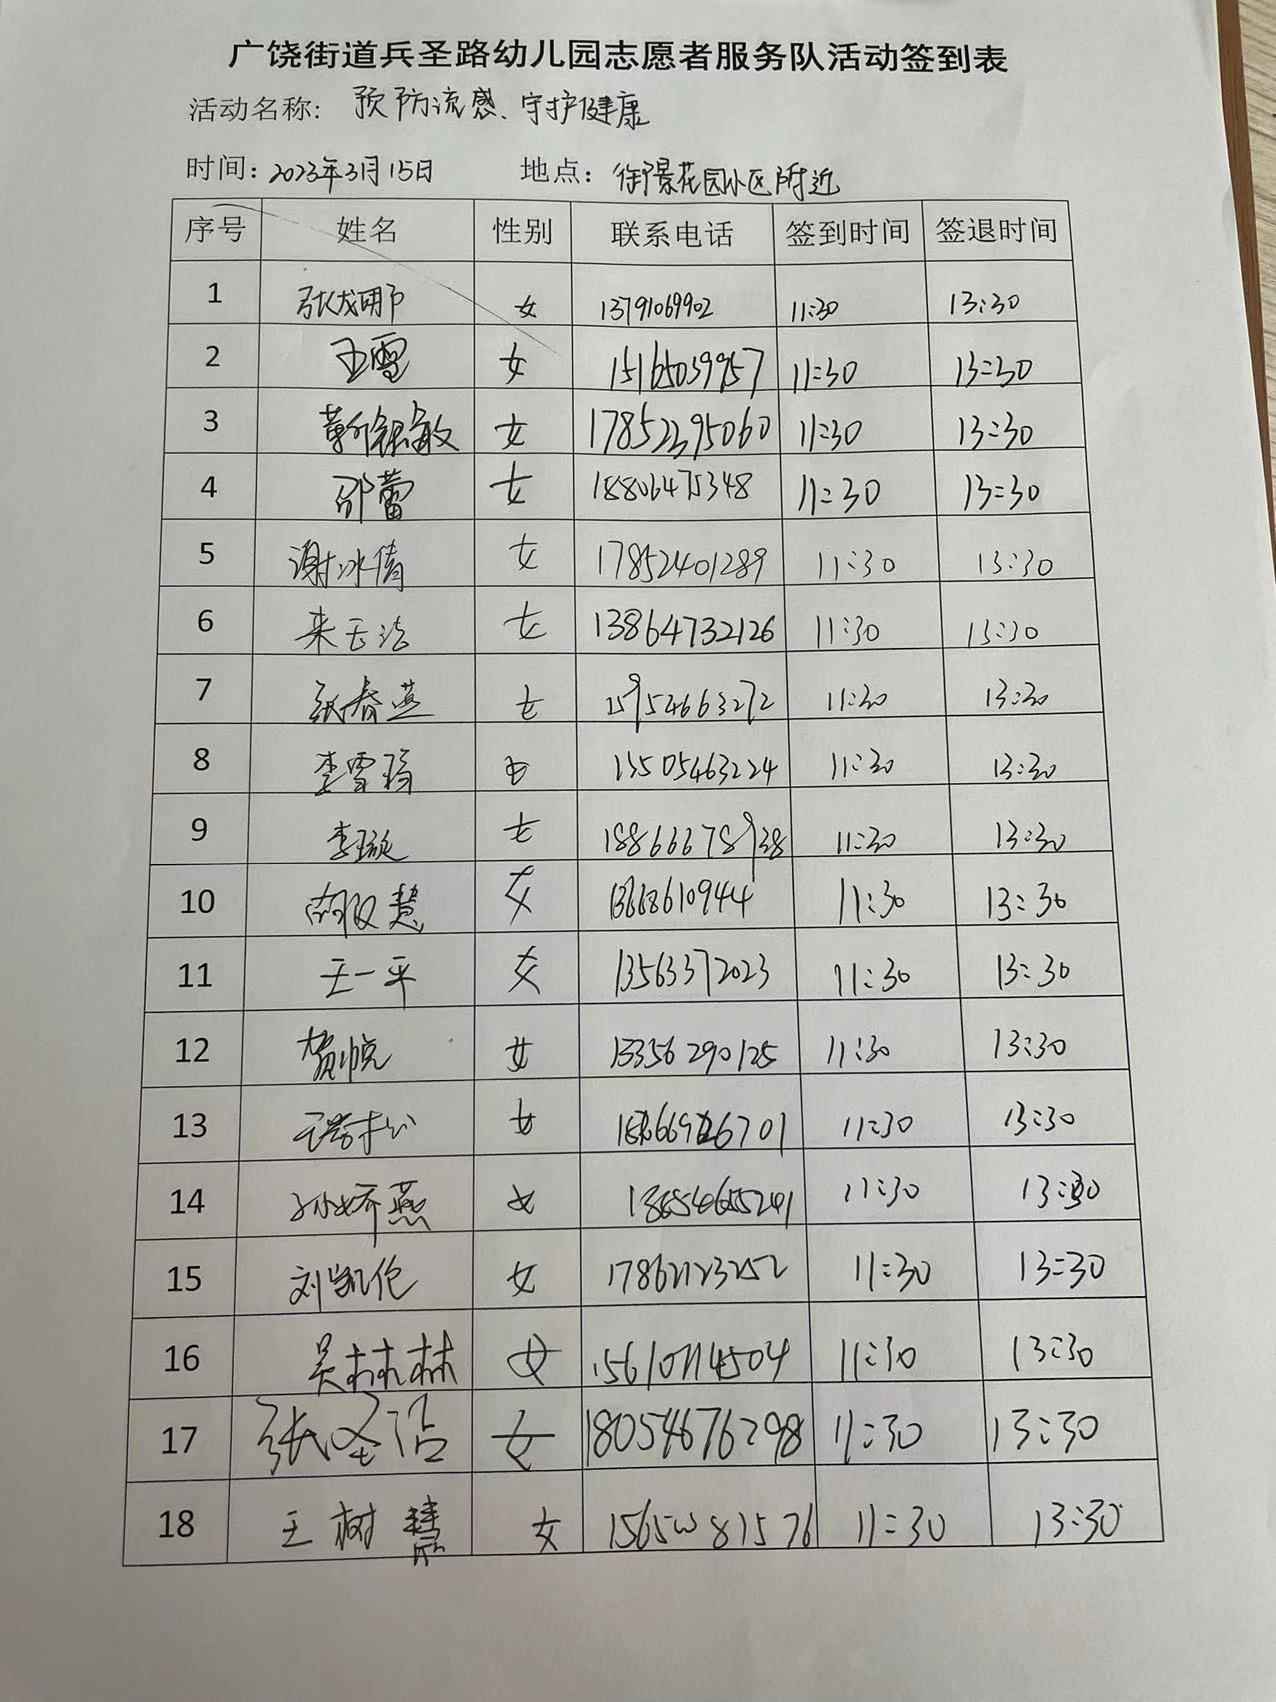 广饶街道兵圣路幼儿园志愿者服务队活动签到表
活动名称: 预防流感、守护健康
时间: 2023年3月15日 地点: 御景花园小区附近
序号 姓名 性别 联系电话 签到时间 签退时间
1 女 13791069902 11:30 13:30
2 王雪 女 15165039957 11:30 13:30
3 女 17852395060 11:30 13:30
4 邵蕾 女 18806475348 11:30 13:30
5 谢冰倩 女 17852401289 11:30 13:30
6 来玉洁 女 13864732126 11:30 13:30
7 张春燕 女 15954663272 11:30 13:30
8 李雪琦 女 13505463224 11:30 13:30
9 李璇 女 18866678938 11:30 13:30
10 女 13668610944 11:30 13:30
11 王一平 女 13563372023 11:30 13:30
12 贺帨 女 15356290125 11:30 13:30
13 女 11:30 13:30
14 孙娇燕 女 11:30 13:30
15 刘凯伦 女 17862123252 11:30 13:30
16 吴林林 女 15610114504 11:30 13:30
17 张圣洁 女 18054676298 11:30 13:30
18 王树慧 女 11:30 13:30